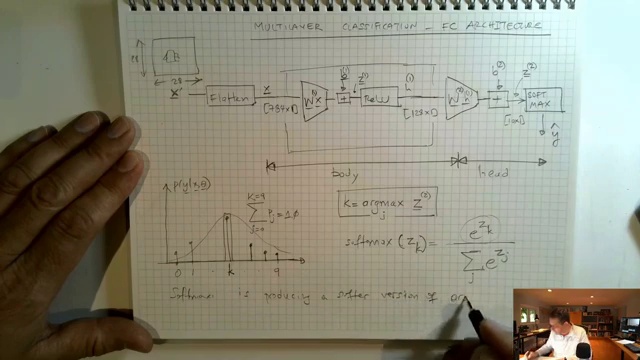 MULTILAYER CLASSIFICATION - FC ARCHITECTURE
28
28
x
Flatten
x
[784x1]
W^(1) x
b^(1)
+
z^(1)
ReLU
h^(1)
[128x1]
b^(2)
+
z^(2)
[10x1]
SOFT
MAX
ŷ
body
head
p(y|x,θ)
K=9
∑ P_j = 1.0
j=0
k = argmax_j z^(2)
softmax (z_k) = e^{z_k} / ∑_j e^{z_j}
0 1 k 9
Softmax is producing a softer version of